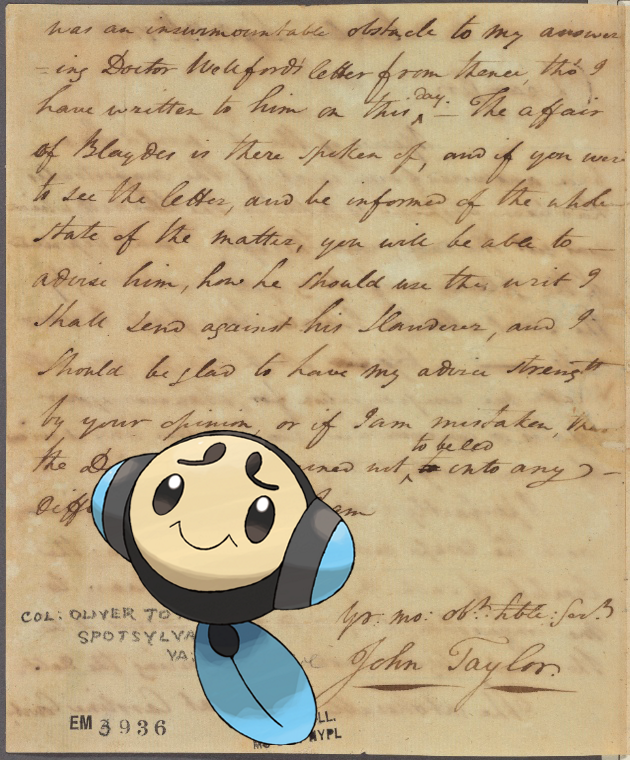 was an insurmountable obstacle to my answer
-ing Doctor Wellford's letter from thence, tho' I
have written to him on this day. — The affair
of Blaydes is there spoken of, and if you were
to see the letter, and be informed of the whole
state of the matter, you will be able to —
advise him, how he should use the writ I
shall send against his Slanderer, and I
should be glad to have my advice strength
by your opinion, or if I am mistaken, that
the not to be led into any —
am
Yr. mo: obt. hble: Servt.
John Taylor.
COL: OLIVER TO
SPOTSYLVA
VA
EM 3936
LL.
NYPL